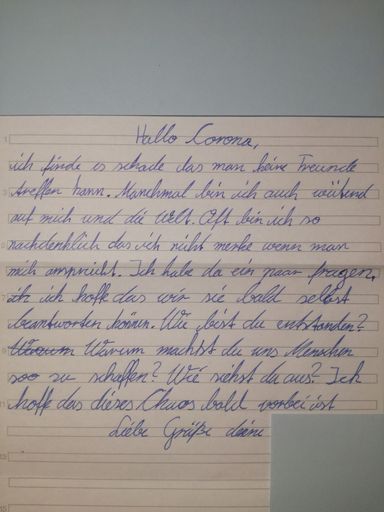 Hallo Corona,
ich finde es schade das man keine Freunde
treffen kann. Manchmal bin ich auch wütend
auf mich und die Welt. Oft bin ich so
nachdenklich das ich nicht merke wenn man
mich anspricht. Ich habe da ein paar fragen,
ich hoffe das wir sie bald selbst
beantworten können. Wie bist du entstanden?
Warum Warum machtst du uns Menschen
soo zu schaffen? Wie siehst du aus? Ich
hoffe das dieses Chaos bald vorbei ist
Liebe Grüße deine